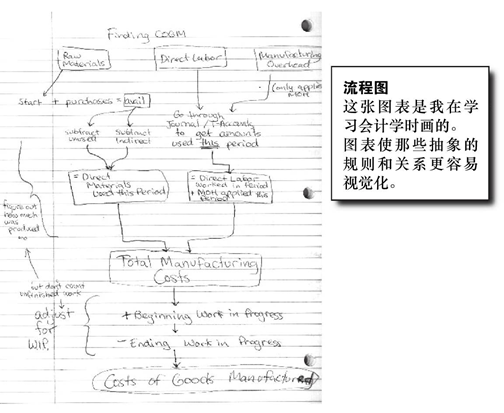 Finding COGM
Raw
Materials
Direct Labor
Manufacturing
Overhead
(only applied
MOH)
Start + purchases = avail
subtract
unused
subtract
indirect
Go through
Journal / T-Accounts
to get amounts
used this period
= Direct
Materials
Used this Period
= Direct Labor
worked in Period
+ MOH applied this
Period
figure out
how much
was
produced
Total Manufacturing
Costs
but don't count
unfinished work
adjust
for
WIP
+ Beginning Work in Progress
- Ending Work in Progress
Costs of Goods Manufactured
流程图
这张图表是我在学
习会计学时画的。
图表使那些抽象的
规则和关系更容易
视觉化。